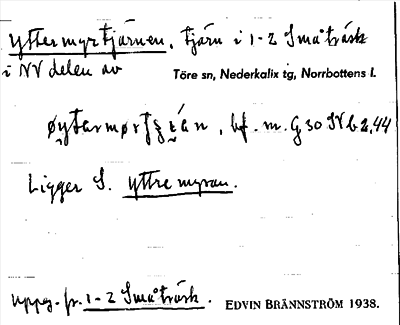 Yttermyrtjärnen, tjärn i 1-2 Småträsk
i NV delen av Töre sn, Nederkalix tg, Norrbottens l.
bf. m. G 30 SV b 2,44
Ligger S. Yttre myran.
Uppg. fr. 1-2 Småträsk. EDVIN BRÄNNSTRÖM 1938.